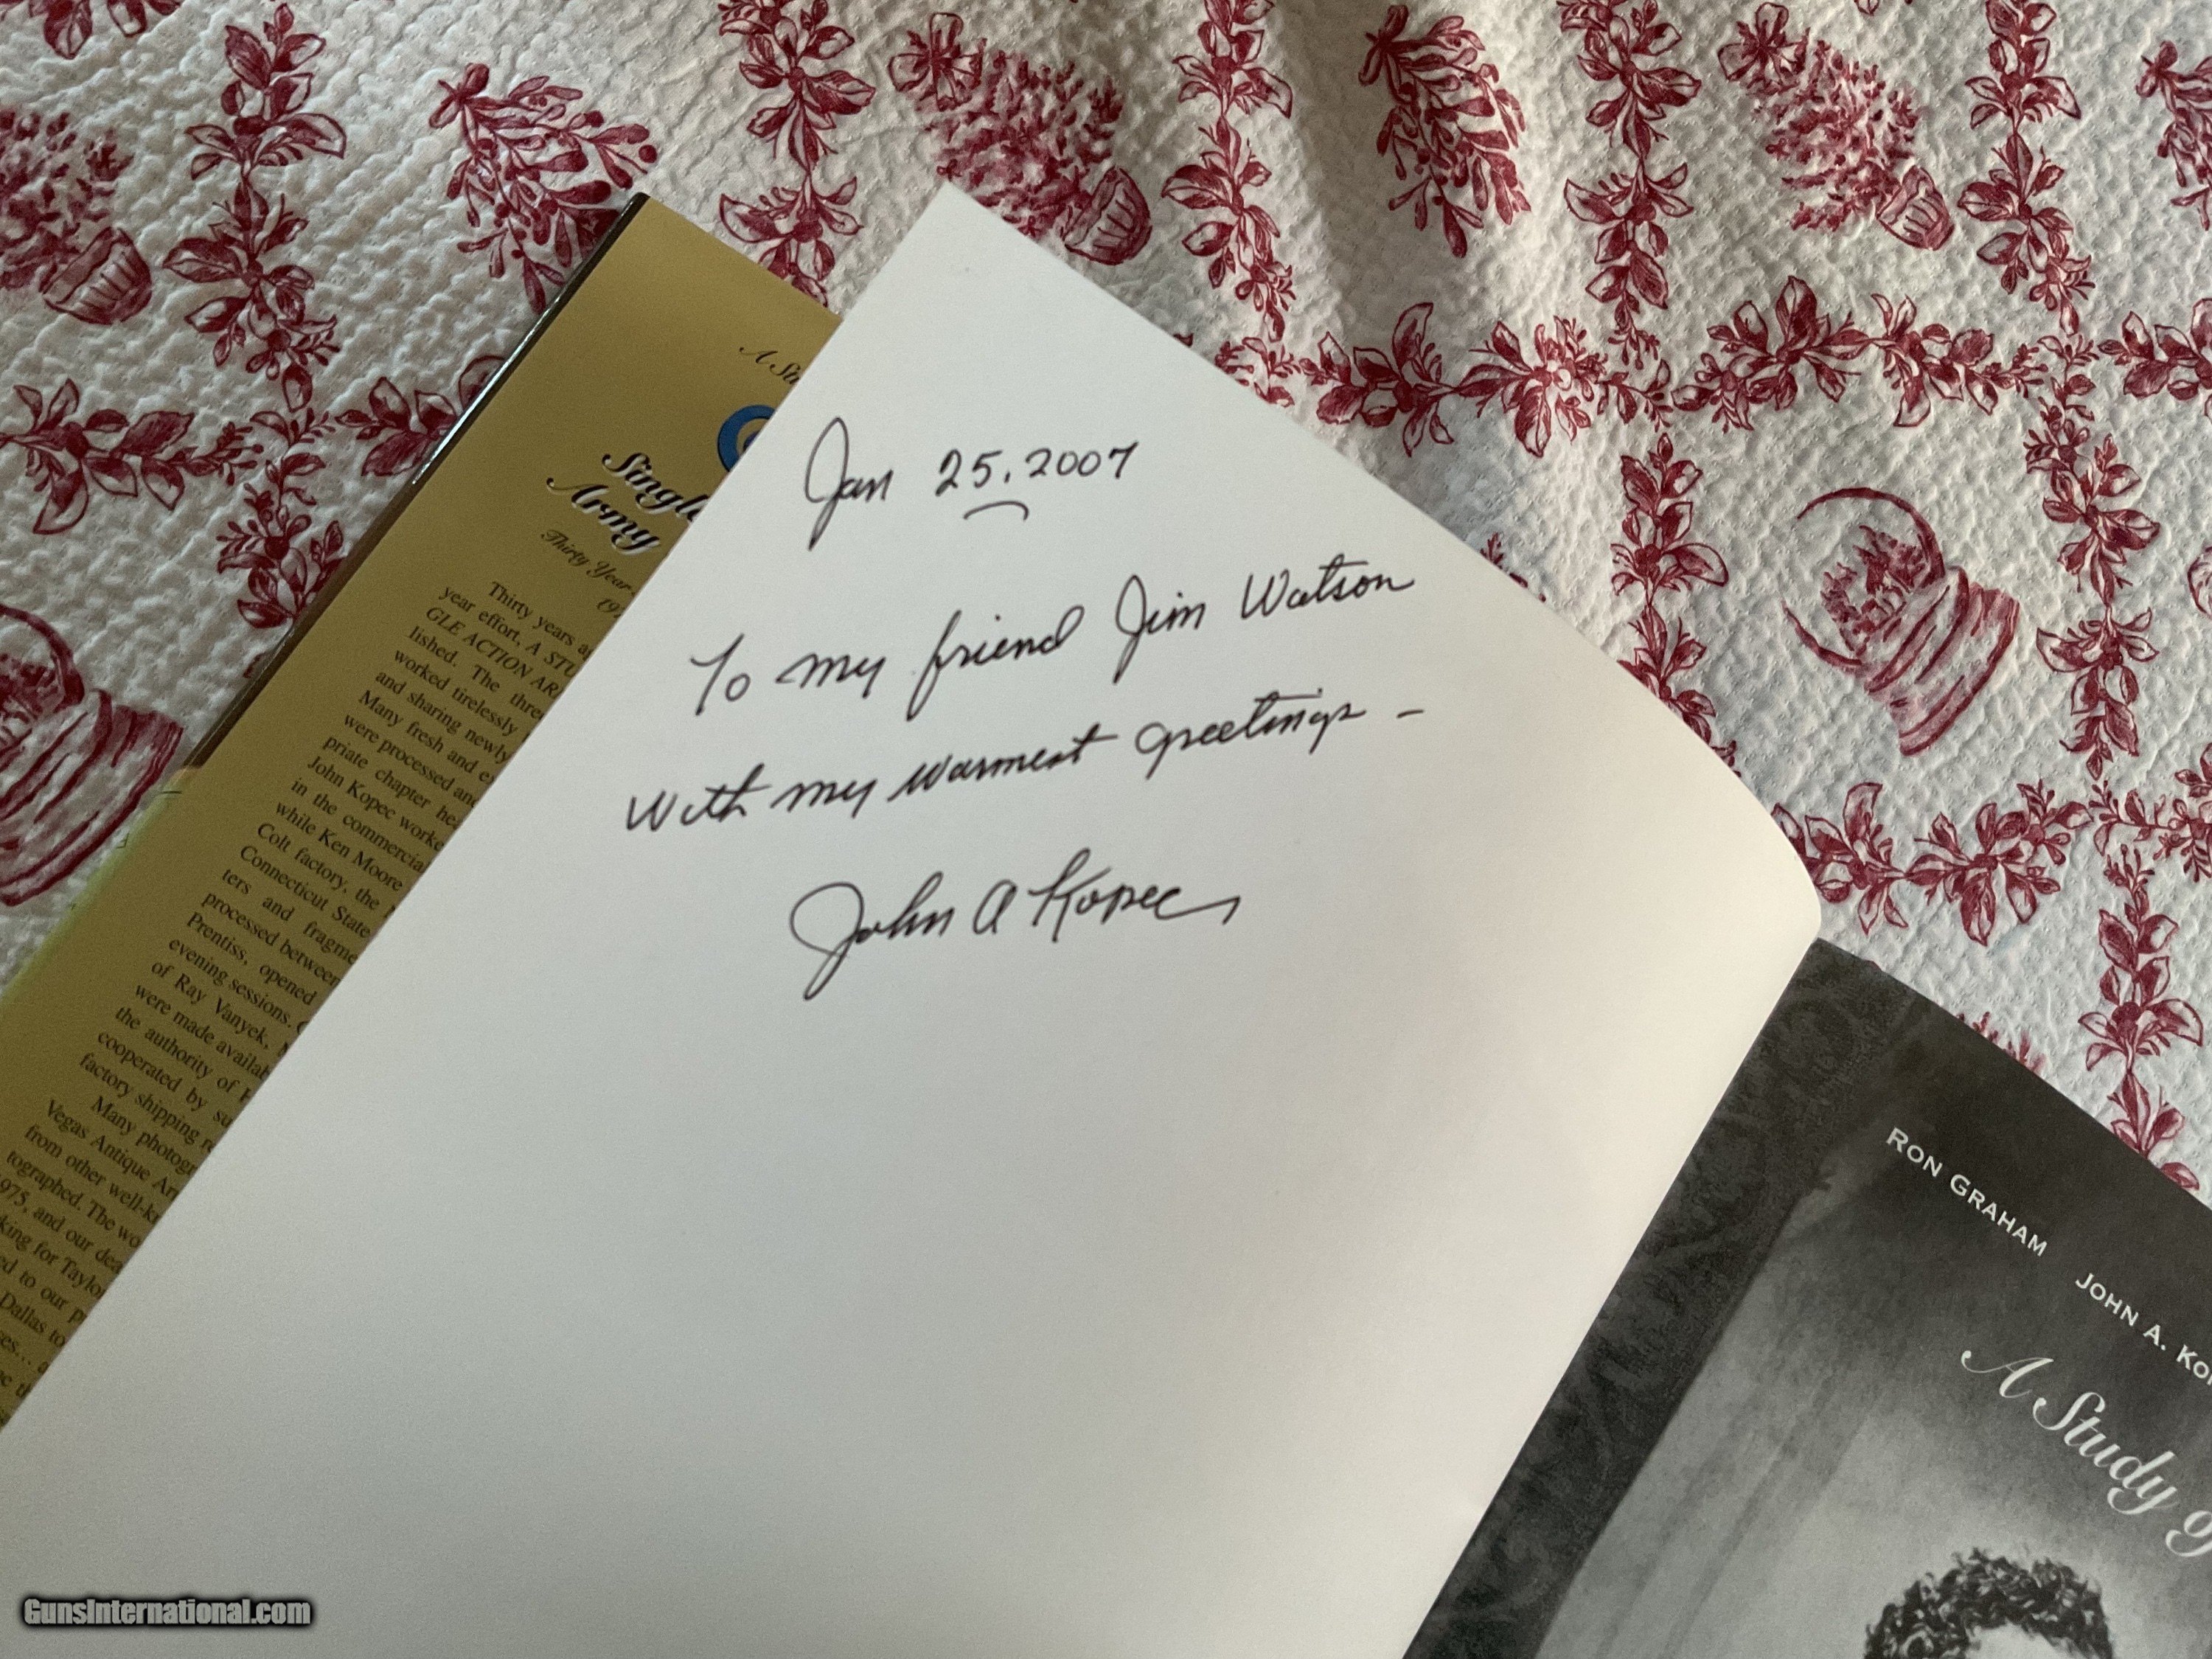 A
Single
Army
Thirty Year
Thirty years
year effort, A STU
GLE ACTION AR
lished. The three
worked tirelessly
and sharing newly
Many fresh and
were processed and
priate chapter
John Kopec
in the commercial
while Ken Moore
Colt factory, the
Connecticut State
ters and
processed between
Prentiss, opened
evening sessions.
of Ray Vanyek,
were made
the authority of
cooperated by
factory shipping
Many
Vegas Antique
from other
tographed. The
975, and our
king for
ed to our
Dallas to
Jan 25, 2007
To my friend Jim Watson
With my warmest greetings –
John A Kopec
RON GRAHAM JOHN A.
A Study of
GunsInternational.com